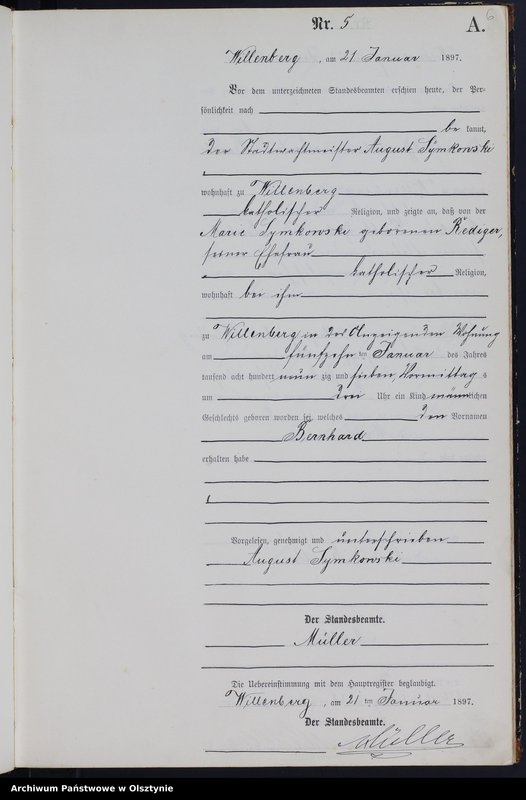 6
Nr. 5
A.
Willenberg, am 21 Januar 1897.
Vor dem unterzeichneten Standesbeamten erschien heute, der Per-
sönlichkeit nach
be kannt,
der Stadtwachtmeister August Symkowski
wohnhaft zu Willenberg
katholischer Religion, und zeigte an, daß von der
Marie Symkowski geborenen Rediger,
seiner Ehefrau
katholischer Religion,
wohnhaft bei ihm
zu Willenberg in des Anzeigenden Wohnung
am fünfzehn ten Januar des Jahres
tausend acht hundert neun zig und sieben, Vormittag s
um drei Uhr ein Kind männlichen
Geschlechts geboren worden sei, welches den Vornamen
Bernhard
erhalten habe
Vorgelesen, genehmigt und unterschrieben
August Symkowski
Der Standesbeamte.
Müller
Die Uebereinstimmung mit dem Hauptregister beglaubigt.
Willenberg, am 21 ten Januar 1897.
Der Standesbeamte.
Müller
Archiwum Państwowe w Olsztynie